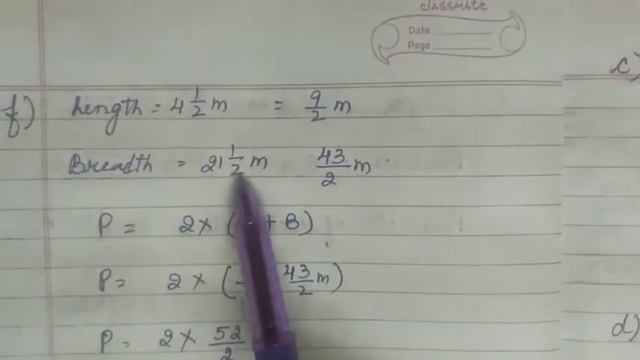 classmate
Date
Page
c)
f) Length = 4 1/2 m = 9/2 m
Breadth = 21 1/2 m 43/2 m
P = 2 × ( + B)
P = 2 × ( 43/2 m)
P = 2 × 52/2
d)